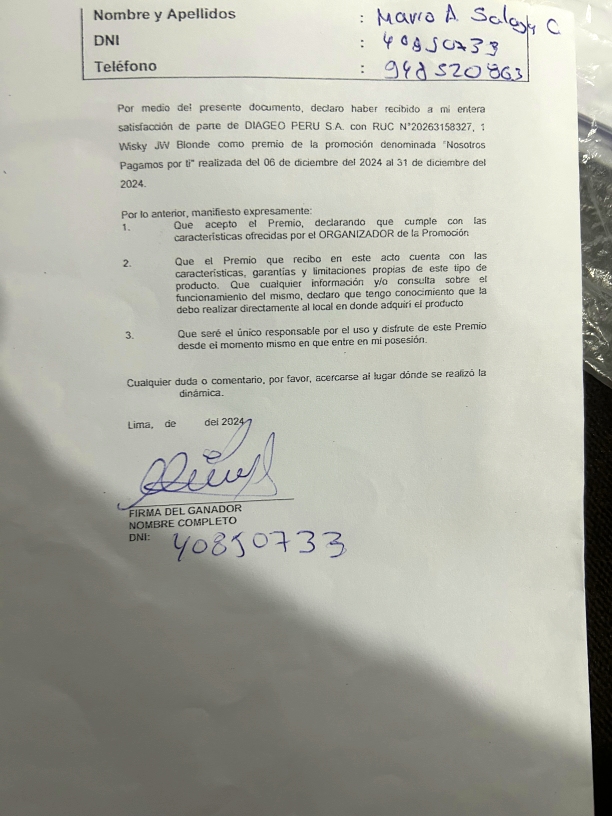 Nombre y Apellidos : Mario A. Salazar C.
DNI : 40850733
Teléfono : 948520863
Por medio del presente documento, declaro haber recibido a mi entera
satisfacción de parte de DIAGEO PERU S.A. con RUC N°20263158327, 1
Wisky JW Blonde como premio de la promoción denominada "Nosotros
Pagamos por ti" realizada del 06 de diciembre del 2024 al 31 de diciembre del
2024.
Por lo anterior, manifiesto expresamente:
1. Que acepto el Premio, declarando que cumple con las
características ofrecidas por el ORGANIZADOR de la Promoción
2. Que el Premio que recibo en este acto cuenta con las
características, garantías y limitaciones propias de este tipo de
producto. Que cualquier información y/o consulta sobre el
funcionamiento del mismo, declaro que tengo conocimiento que la
debo realizar directamente al local en donde adquirí el producto
3. Que seré el único responsable por el uso y disfrute de este Premio
desde el momento mismo en que entre en mi posesión.
Cualquier duda o comentario, por favor, acercarse al lugar dónde se realizó la
dinámica.
Lima, de del 2024
FIRMA DEL GANADOR
NOMBRE COMPLETO
DNI: 40850733